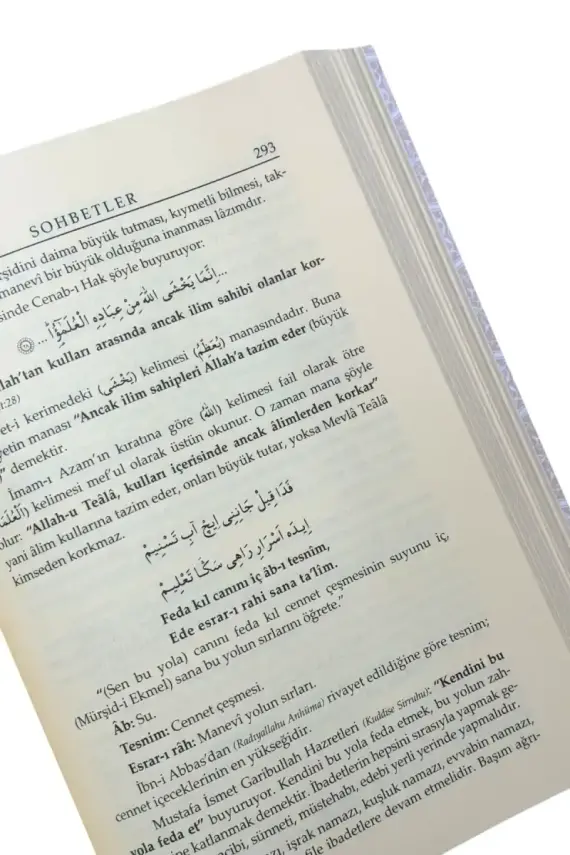 293
SOHBETLER
şidini daima büyük tutması, kıymetli bilmesi, tak-
manevî bir büyük olduğuna inanması lâzımdır.
sinde Cenab-ı Hak şöyle buyuruyor:
...اِنَّمَا يَخْشَى اللّٰهَ مِنْ عِبَادِهِ الْعُلَمٰٓؤُ۬اۜ...
lah'tan kulları arasında ancak ilim sahibi olanlar kor-
1:28)
et-i kerimedeki (يَخْشَى) kelimesi (يُعَظِّمُ) manasındadır. Buna
yetin manası "Ancak ilim sahipleri Allah'a tazim eder (büyük
)" demektir.
İmam-ı Azam'ın kıratına göre (اللّٰهُ) kelimesi fail olarak ötre
kelimesi mef'ul olarak üstün okunur. O zaman mana şöyle
olur: "Allah-u Teâlâ, kulları içerisinde ancak âlimlerden korkar"
yani âlim kullarına tazim eder, onları büyük tutar, yoksa Mevlâ Teâlâ
kimseden korkmaz.
فَدَا قِيلْ جَانِنِى اِيچْ آبِ تَسْنِيمْ
اِيدَه اَسْرَارِ رَاهِى سَكَا تَعْلِيمْ
Feda kıl canını iç âb-ı tesnim,
Ede esrar-ı rahi sana ta'lim.
"(Sen bu yola) canını feda kıl cennet çeşmesinin suyunu iç,
(Mürşid-i Ekmel) sana bu yolun sırlarını öğrete."
Âb: Su.
Tesnim: Cennet çeşmesi.
Esrar-ı râh: Manevî yolun sırları.
İbn-i Abbas'dan (Radıyallahu Anhüma) rivayet edildiğine göre tesnim;
cennet içeceklerinin en yükseğidir.
Mustafa İsmet Garibullah Hazretleri (Kuddise Sirruhu); "Kendini bu
yola feda et" buyuruyor. Kendini bu yola feda etmek, bu yolun zah-
ine katlanmak demektir. İbadetlerin hepsini sırasıyla yapmak ge-
cibi, sünneti, müstehabı, edebi yerli yerinde yapmalıdır.
azı, işrak namazı, kuşluk namazı, evvabin namazı,
file ibadetlere devam etmelidir. Başım ağrı-